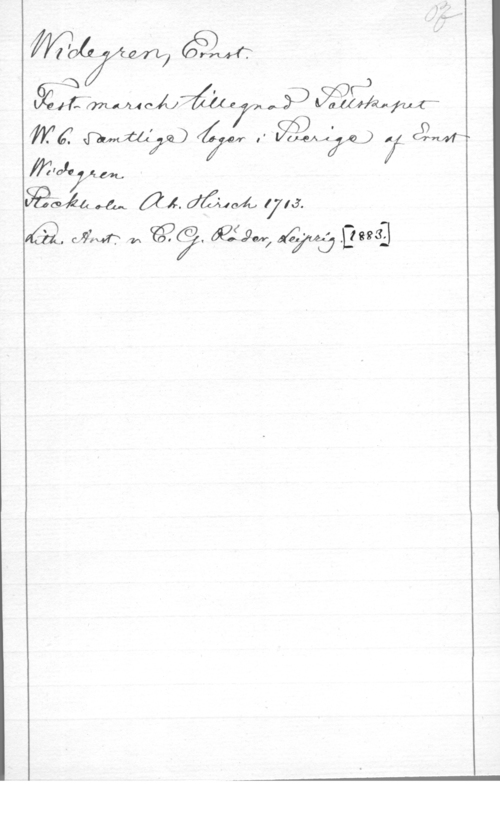 Pf
Widegren, Ernst.
Fest-marsch tillegnad Sällskapet
W. 6. samtlige loger i Sverige af Ernst
Widegren.
Stockholm Ab. Hirsch 1713.
Lith. Anst. v. C. G. Röder, Leipzig. [1883.]